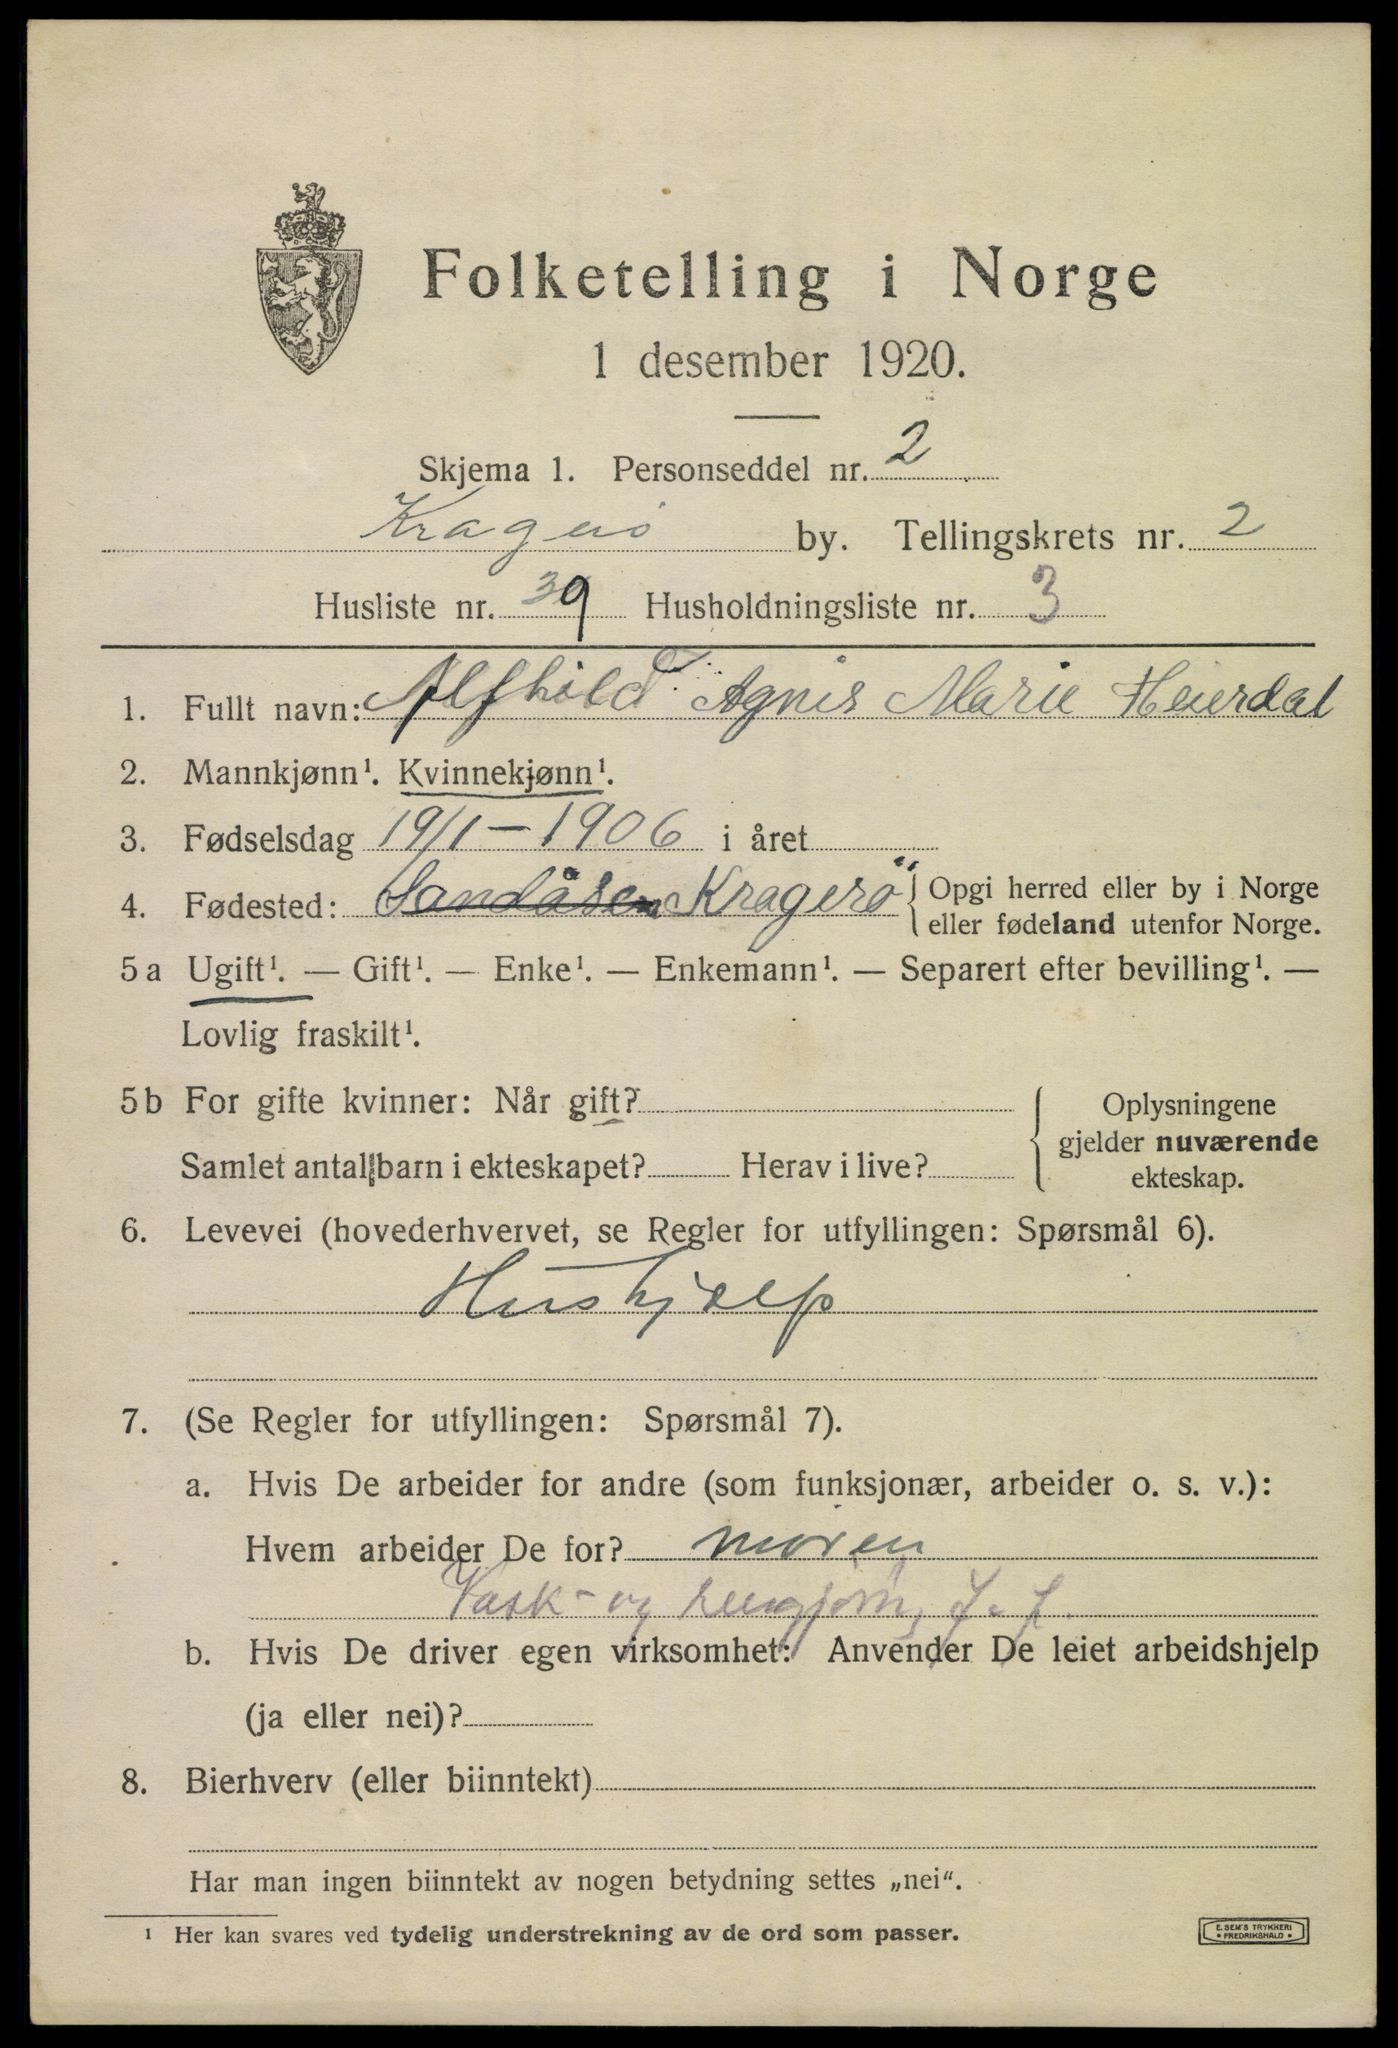 Folketelling i Norge
1 desember 1920.
Skjema 1. Personseddel nr. 2
Kragerö by. Tellingskrets nr. 2
Husliste nr. 39 Husholdningsliste nr. 3
1. Fullt navn: Alfhild Agnis Marie Heierdal
2. Mannkjønn¹. Kvinnekjønn¹.
3. Fødselsdag 19/1 - 1906 i året
4. Fødested: Sandåsen Kragerö { Opgi herred eller by i Norge
eller fødeland utenfor Norge.
5 a Ugift¹. — Gift¹. — Enke¹. — Enkemann¹. — Separert efter bevilling¹. —
Lovlig fraskilt¹.
5 b For gifte kvinner: Når gift? { Oplysningene
gjelder nuværende
Samlet antal barn i ekteskapet? Herav i live?
ekteskap.
6. Levevei (hovederhvervet, se Regler for utfyllingen: Spørsmål 6).
Hushjælp
7. (Se Regler for utfyllingen: Spørsmål 7).
a. Hvis De arbeider for andre (som funksjonær, arbeider o. s. v.):
Hvem arbeider De for? moren
Vask- og
b. Hvis De driver egen virksomhet: Anvender De leiet arbeidshjelp
(ja eller nei)?
8. Bierhverv (eller biinntekt)
Har man ingen biinntekt av nogen betydning settes „nei“.
¹ Her kan svares ved tydelig understrekning av de ord som passer.
E. SEM'S TRYKKERI
• FREDRIKSHALD •